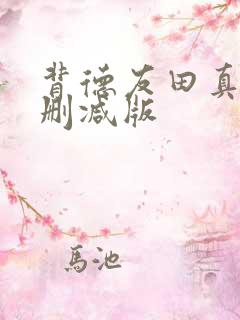 背德友田真
删减版
馬池